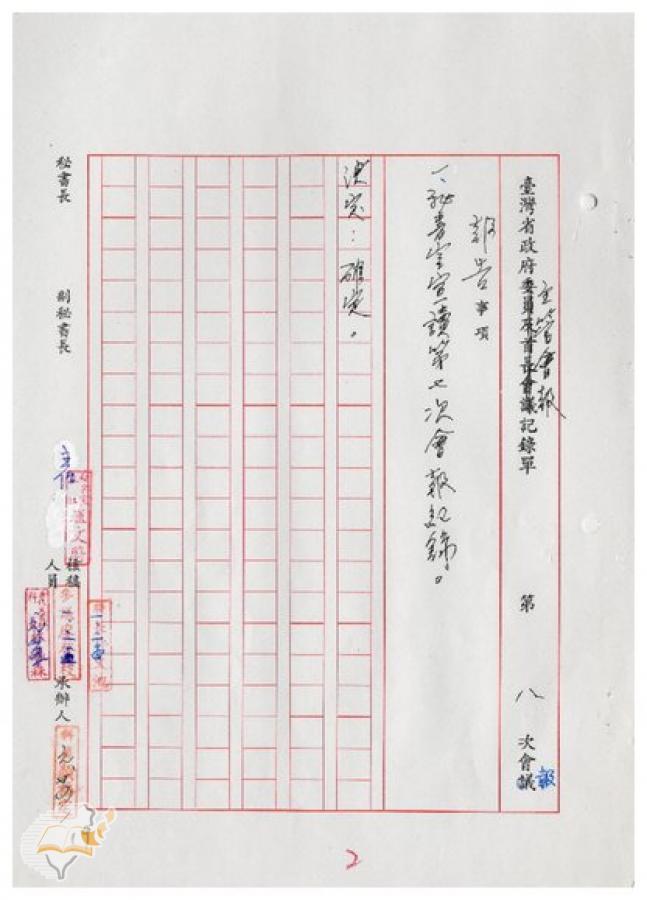 臺灣省政府委員及首長會議記錄單
主管會報
第 八 次會議
報
報告事項
一、秘書室宣讀第七次會報紀錄。
決定：確定。
秘書長
副秘書長
主任
核稿人員
承辦人
2